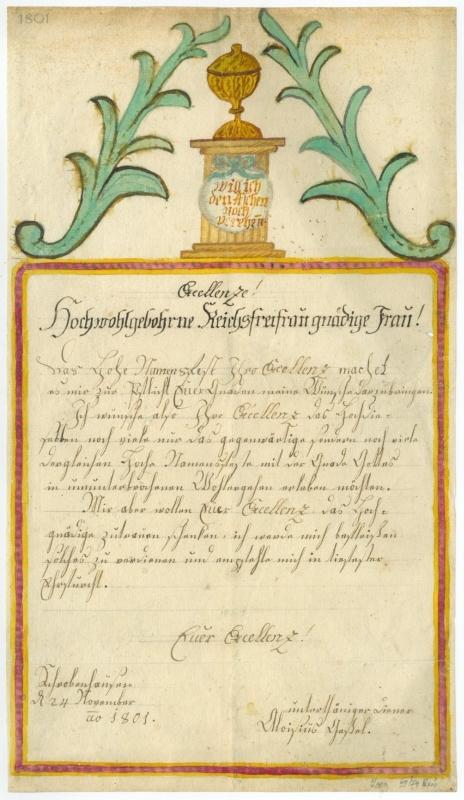 1801
will ich
den Aschen
noch
verehren
Excellenze!
Hochwohlgebohrne Reichsfreifrau gnädige Frau!
Das Hohe Namensfest Ihro Excellenz machet
es mir zur Pflicht Euer Gnaden meine Wünsche darzubringen.
Ich wünsche also Ihro Excellenz das Hochdie-
selben noch viele nur das gegenwärtige sondern noch viele
dergleichen Hohe Namensfeste mit der Gnade Gottes
in ununterbrochenen Wohlergehen erleben möchten.
Mir aber wollen Euer Excellenz das Hoch-
gnädige zutrauen schenken: ich werde mich befleißen
solches zu verdienen und empfehle mich in tiefester
Ehrfurcht.
Euer Excellenz!
Schrobenhausen
d 24 November
ao 1801.
unterthäniger Diener
Aloisius